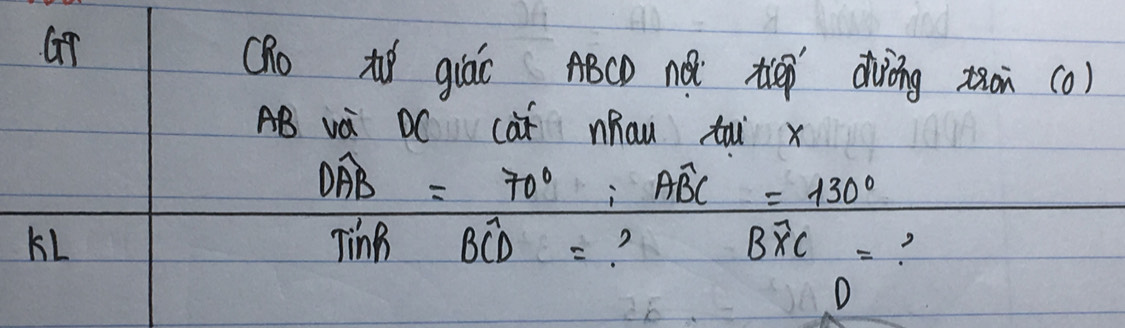 GT Cho tứ giác ABCD nội tiếp đường tròn (O)
AB và DC cắt nhau tại x
DÂB = 70° ; AB̂C = 130°
KL Tính BĈD = ? BX̂C = ?
D